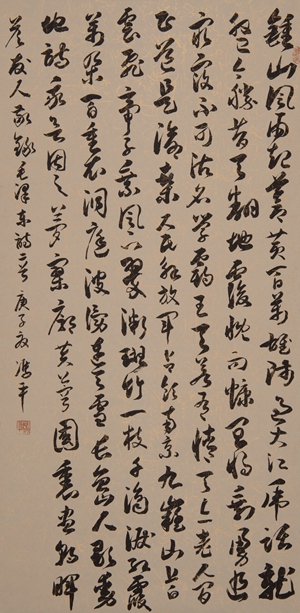 鍾山風雨起蒼黄百萬雄師過大江虎踞龍
盤今勝昔天翻地覆慨而慷宜將剩勇追
窮寇不可沽名學霸王天若有情天亦老人间
正道是滄桑人民解放軍占領南京九嶷山上白
雲飛帝子乘風下翠微斑竹一枝千滴淚紅霞
萬朵百重衣洞庭波涌連天雪長島人歌動
地詩我欲因之夢寥廓芙蓉國裏盡朝暉
答友人 敬錄毛澤東詩二首 庚子 馮平